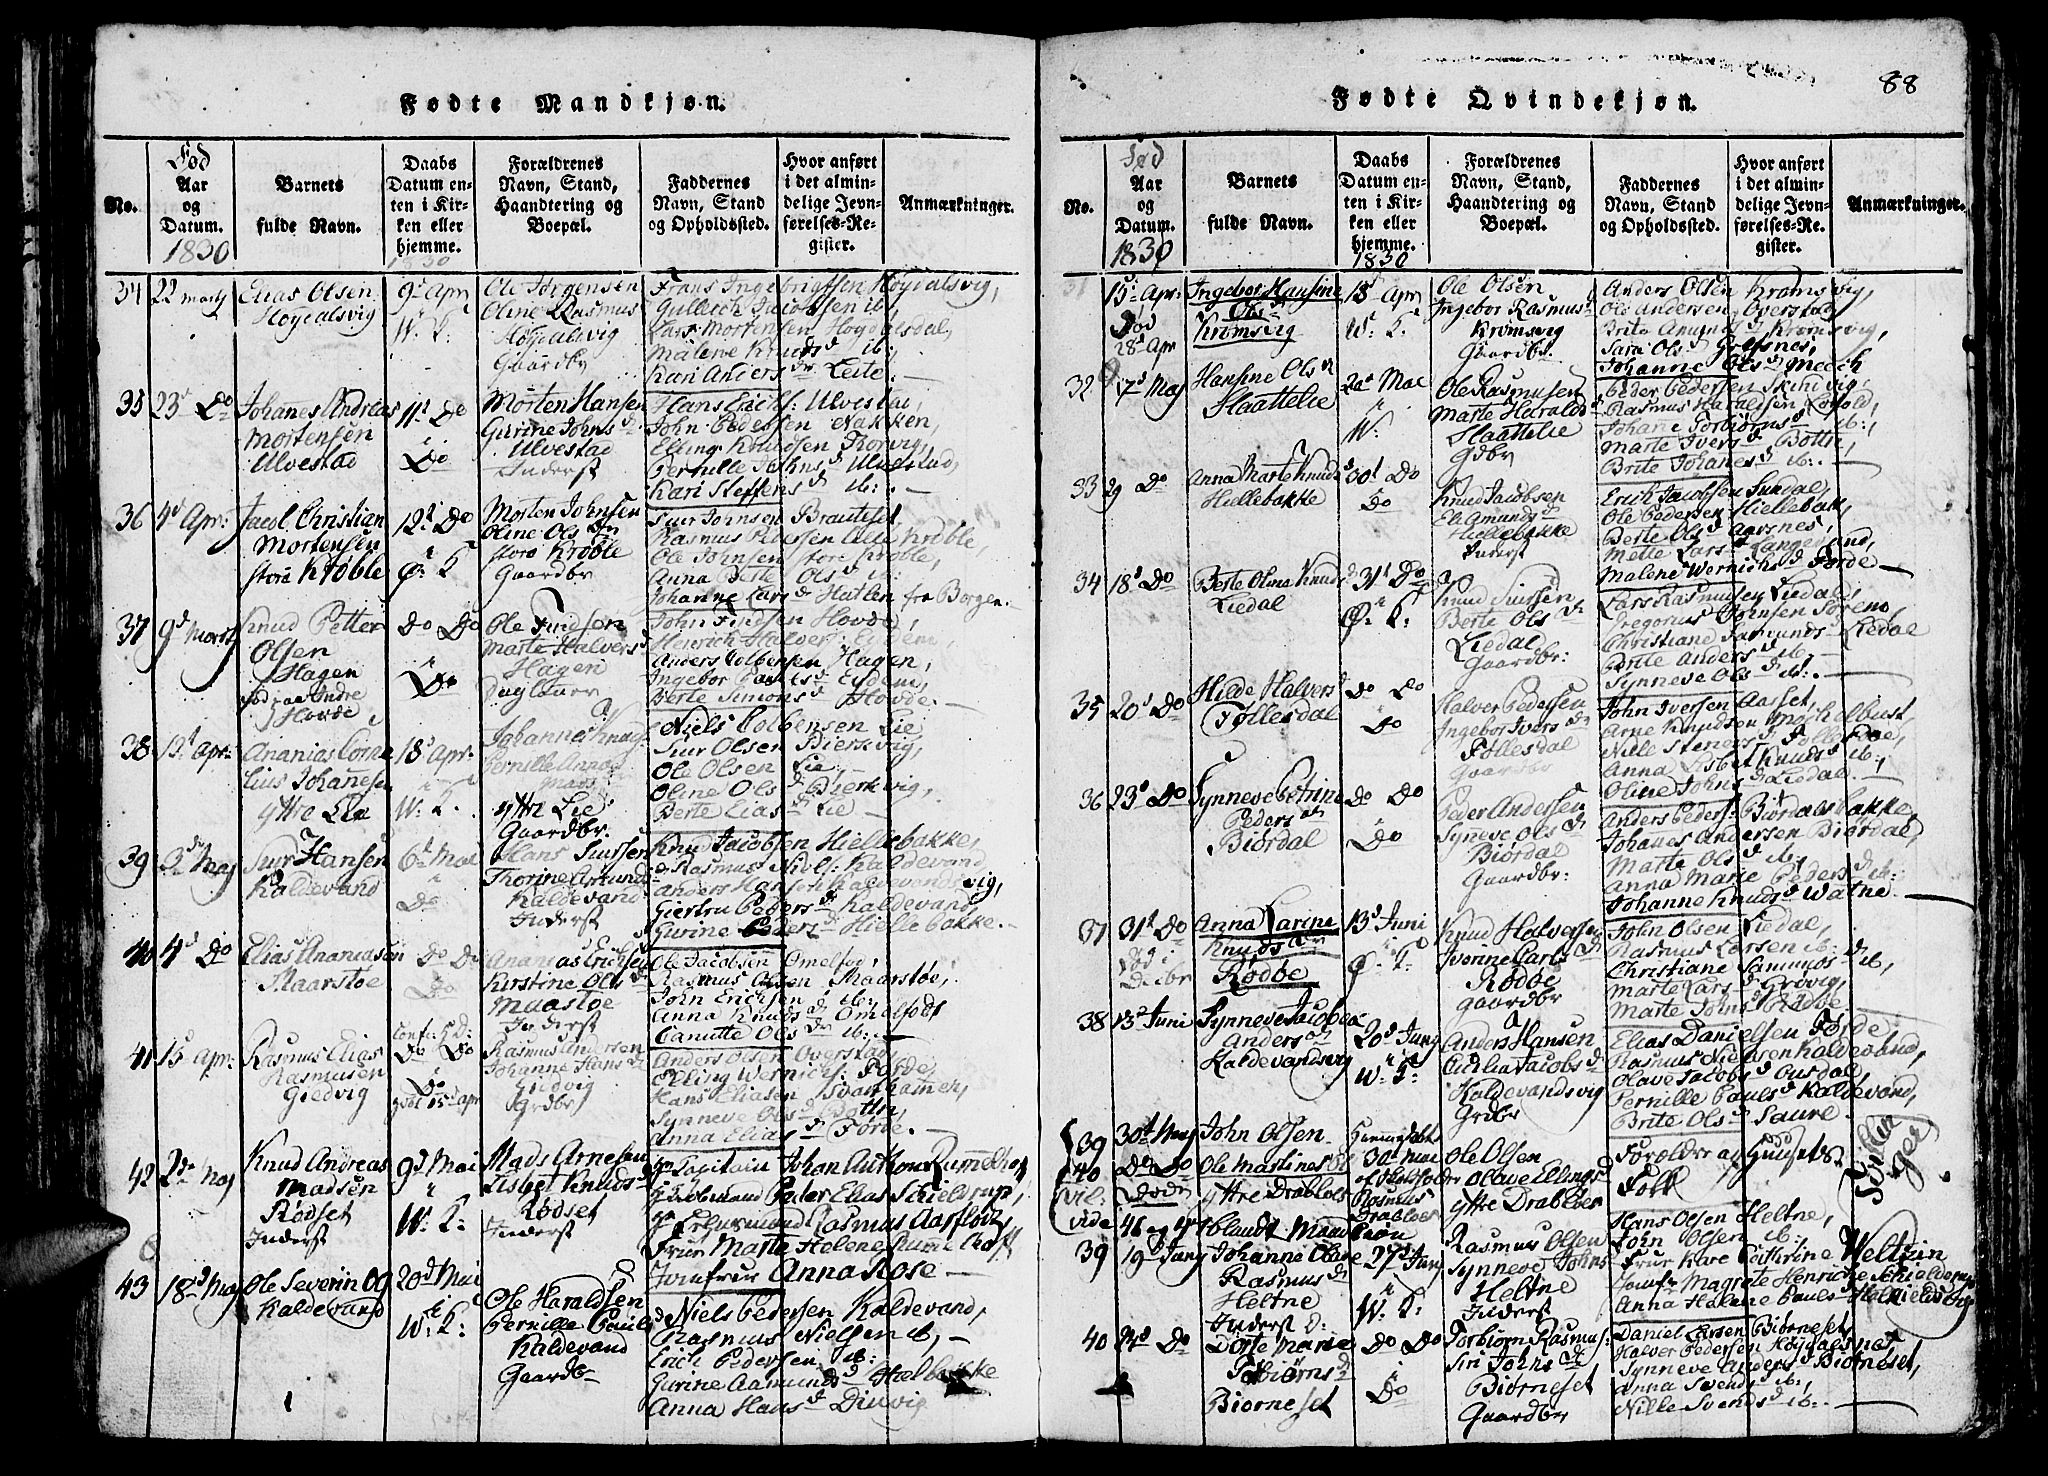 Fødte Mandkjøn.
No.
Fød
Aar
og
Datum.
1830
Barnets
fulde Navn.
Daabs
Datum en-
ten i Kir-
ken eller
hjemme.
1830
Forældrenes
Navn, Stand,
Haandtering og
Boepæl.
Faddernes
Navn, Stand
og Opholdssted.
Hvor anført
i det almin-
delige Jevn-
førelses-Re-
gister.
Anmærkninger.
34
Elias Olsen
Høydalsvig
9d Apr
W. K.
Ole Jørgensen
Oline Rasmus
Høydalsvig
Gaardbr
Frans Ingebrigtsen Høydalsvig,
Gullech Jacobsen ib,
Lars Mortensen Hoydalsdal,
Malene Knudsd ib:,
Kari Andersdr Leite
35
23d Do
Johanes Andreas
Mortensen
Ulvestad
11d Do
i
Do
Morten Hansen
Gurine Johnsd
Ulvestad
Inderst
Hans Erichs: Ulvestad,
John Pedersen Nakken,
Elling Knudsen
Pernille Johnsd Ulvestad,
Kari Steffensd ib:
36
4d Apr:
Jacob Christian
Mortensen
store Krøble
12d Do
i
Ø: K
Morten Johnsen
Oline Olsdr
store Krøble
Gaardbr
Siur Johnsen Brauteset,
Rasmus Pedersen Lille Krøble,
Ole Johnsen store Krøble,
Anna Berte Olsd ib:
Johanne Larsd Hatlen fra Borgen.
37
9d Marts
Knud Petter
Olsen
Hagen
fød paa Indre
Hovde
Do Do
i
Do
Ole Findsen
Marte Halversd
Hagen
John Findsen Hovde,
Henrich Halver: Eidem,
Anders Colbensen Hagen,
Berte Simonsd Hovde.
38
12d Apr:
Ananias Corne
lius Johanesen
ytre Lie
18d Apr:
i
W: K.
Johannes Knudsen
Pernille
ytre Lie
Gaardbr.
Niels Colbensen Lie
Siur Olsen Biersvig,
Ole Olsen Lie,
Oline Olsd Bierkvig,
Berte Eliasd Lie
39
2de May
Siur Hansen
Kaldevand
6d Mai
i
Do
Hans Siursen
Thorine Amunds
Kaldevand
Inderst
Knud Jacobsen Hiellebakke,
Rasmus Niels: Kaldevand
Anders Hansen Kaldevandsvig,
Giertru Pedersd Kaldevand,
Gurine Pedersd Hiellebakke.
40
4d Do
Elias Ananiasen
Maarstøe
Do Do
Do
Ananias Erichsen
Kirstine Olsd
Maastøe
Inderst
Ole Jacobsen Omelfod,
Rasmus Olsen Maarstøe,
John Erichsen ib,
Anna Knudsd Omelfodt
Canutte Olsdr ib:
41
15d Apr:
Rasmus Elias
Rasmusen
Giedvig
Do Do
i
Do
døbt 15d apr
Rasmus Andersen
Johanne Hansd
Giedvig
Grdbr
Anders Olsen Overstad,
Elling Wernichs: Førde,
Hans Eliasen Svanhamer,
Synneve Olsd Bottn,
Anna Eliasd Førde.
42
2de May
Knud Andreas
Madsen
Rødset
Inderst
9d Mai
i
W: K:
Mads Arnesen
Lisbet Knudsd
Rødset
Inderst
Hr Capitain Johan Anthon Rumelhof,
Peder Elias Schieldrup,
Rasmus Aarflodt
Frue Marta Helene Rumelhoff
Jomfrue Anna Rose
43
18d May
Ole Severin Og
Kaldevand
20d Mai
i
W: K:
Ole Haraldsen
Pernille Paulsd
Kaldevand
Gaardb
Niels Pedersen Kaldevand,
Rasmus Nielsen ib,
Erich Pedersen ib:
Gurine Aamundsd Hielbakke
Anna Hansd Divig
88
Fødte Qvindekjøn.
No.
Fød
Aar
og
Datum.
1830
Barnets
fulde Navn.
Daabs
Datum en-
ten i Kir-
ken eller
hjemme.
1830
Forældrenes
Navn, Stand,
Haandtering og
Boepæl.
Faddernes
Navn, Stand
og Opholdssted.
Hvor anført
i det almin-
delige Jevn-
førelses-Re-
gister.
Anmærkninger.
31
15d Apr:
Død
28d Apr
Ingebor Hansine
Olsd
Kromsvig
18d Apr
W. K.
Ole Olsen
Ingebor Rasmusd
Kromsvig
Gaardbr.
Anders Olsen Kromsvig,
Ole Andersen Overstad,
Brite Amundsd Kromsvig,
Sara Olsd Grefsnes,
Johanne Olsd Meech
32
17d May
Hansine Olsd
Haattelie
20d Mai
i
W:
Ole Rasmusen
Marte Haralds
Haattelie
Gdbr
Peder Pedersen
Rasmus Haraldsen
Johane Torbiørnsd ib:,
Marte Iversd Bottn,
Brite Johanesd ib:.
33
29 Do
Anna Marte Knudsd
Hiellebakke
30d Do
Do
Knud Jacobsen
Eli Amundsd
Hiellebakke
Inderst
Erich Jacobsen Sundal,
Ole Pedersen Hiellebakke,
Berte Olsd Aarsnes,
Mette Larsd
Malene Wernichsd Førde
34
18d Do
Berte Olina Knudsd
Liedal
31d Do
i
Ø: K:
Knud Siursen,
Berte Olsd
Liedal
Gaardbr:
Lars Rasmusen Liedal,
Gregorius Johnsen
Christiane Samundsd Liedal
Brite Andersd ib:
Synneve Olsd ib:
35
20d Do
Hilde Halversd
Føllesdal
Do Do
Do
Halver Pedersen
Ingebor Iversd
Føllesdal
Gaardbr
John Iversen Aasset,
Arne Knudsen Moskolbust,
Nille Stenersd
Anna Lisbet Knudsd ib:
Oline Johnsd Liedal.
36
23d Do
Synneve Petrine
Pedersdt
Biørdal
Do Do
i
Do
Peder Andersen
Syneve Olsd
Biørdal
Gaardbr:
Anders Peders: Biørdalsbakke,
Johannes Andersen Biørdal,
Marte Olsd ib,
Anna Marie Pedersd ib:
Johanne Knudsd Watne
37
31d Do
Anna Larine
Knudsdr
Rødbe
13d Juni
i
Ø: K:
Knud Halversen
Ivonne Carlsd
Rødbe
gaardbr
John Olsen Liedal,
Rasmus Larsen ib:
Christiane Samundsd ib,
Marte Larsd Grevig,
Marte Johnsd Rødbe
38
13d Juni
Synneve Jacobea
Andersd
Kaldevandsvig
20d Juny
i
W: K:
Anders Hansen
Cicilia Jacobsd
Kaldevandsvig
Grdbr
Elias Danielsen Førde
Rasmus Nielsen Kaldevand,
Olave Jacobsd Ousdal,
Pernille Paulsd Kaldevand,
Brite Olsd Saure.
39
40
30d May
Do Do
John Olsen
Ole Martines
ytre Drabløs
30d Mai
Rasmus
Drabløs
Ole Olsen
Olave Ellingsd
ytre Drabløs
Forældre og Huusets
Folk
Tvillin
ger
vide 46 og 47 iblandt Mandkiøn
39
19d Juny
Johanne Olave
Rasmusd
Heltne
Inderst d:
27d Juny
i
W: K:
Rasmus Olsen
Synneve Johns
Heltne
Inderst
Hans Olsen Heltne,
John Olsen ib:
Frue Kare Cathrine Weltzin
Jomfr Magrete Henricke Schielderup
Anna Helene Pauls
40
24d Do
Dorte Marie
Tobiørnsd
Biørneset
Do Do
i
Do
Torbiørn Rasmus:
Siri Johnsd
Biørneset
Gaardbr
Daniel Larsen Biørneset
Halver Pedersen Høydalsnes,
Synneve Andersd Biørneset,
Anna Svendsd ib:,
Nille Svendsd ib:.